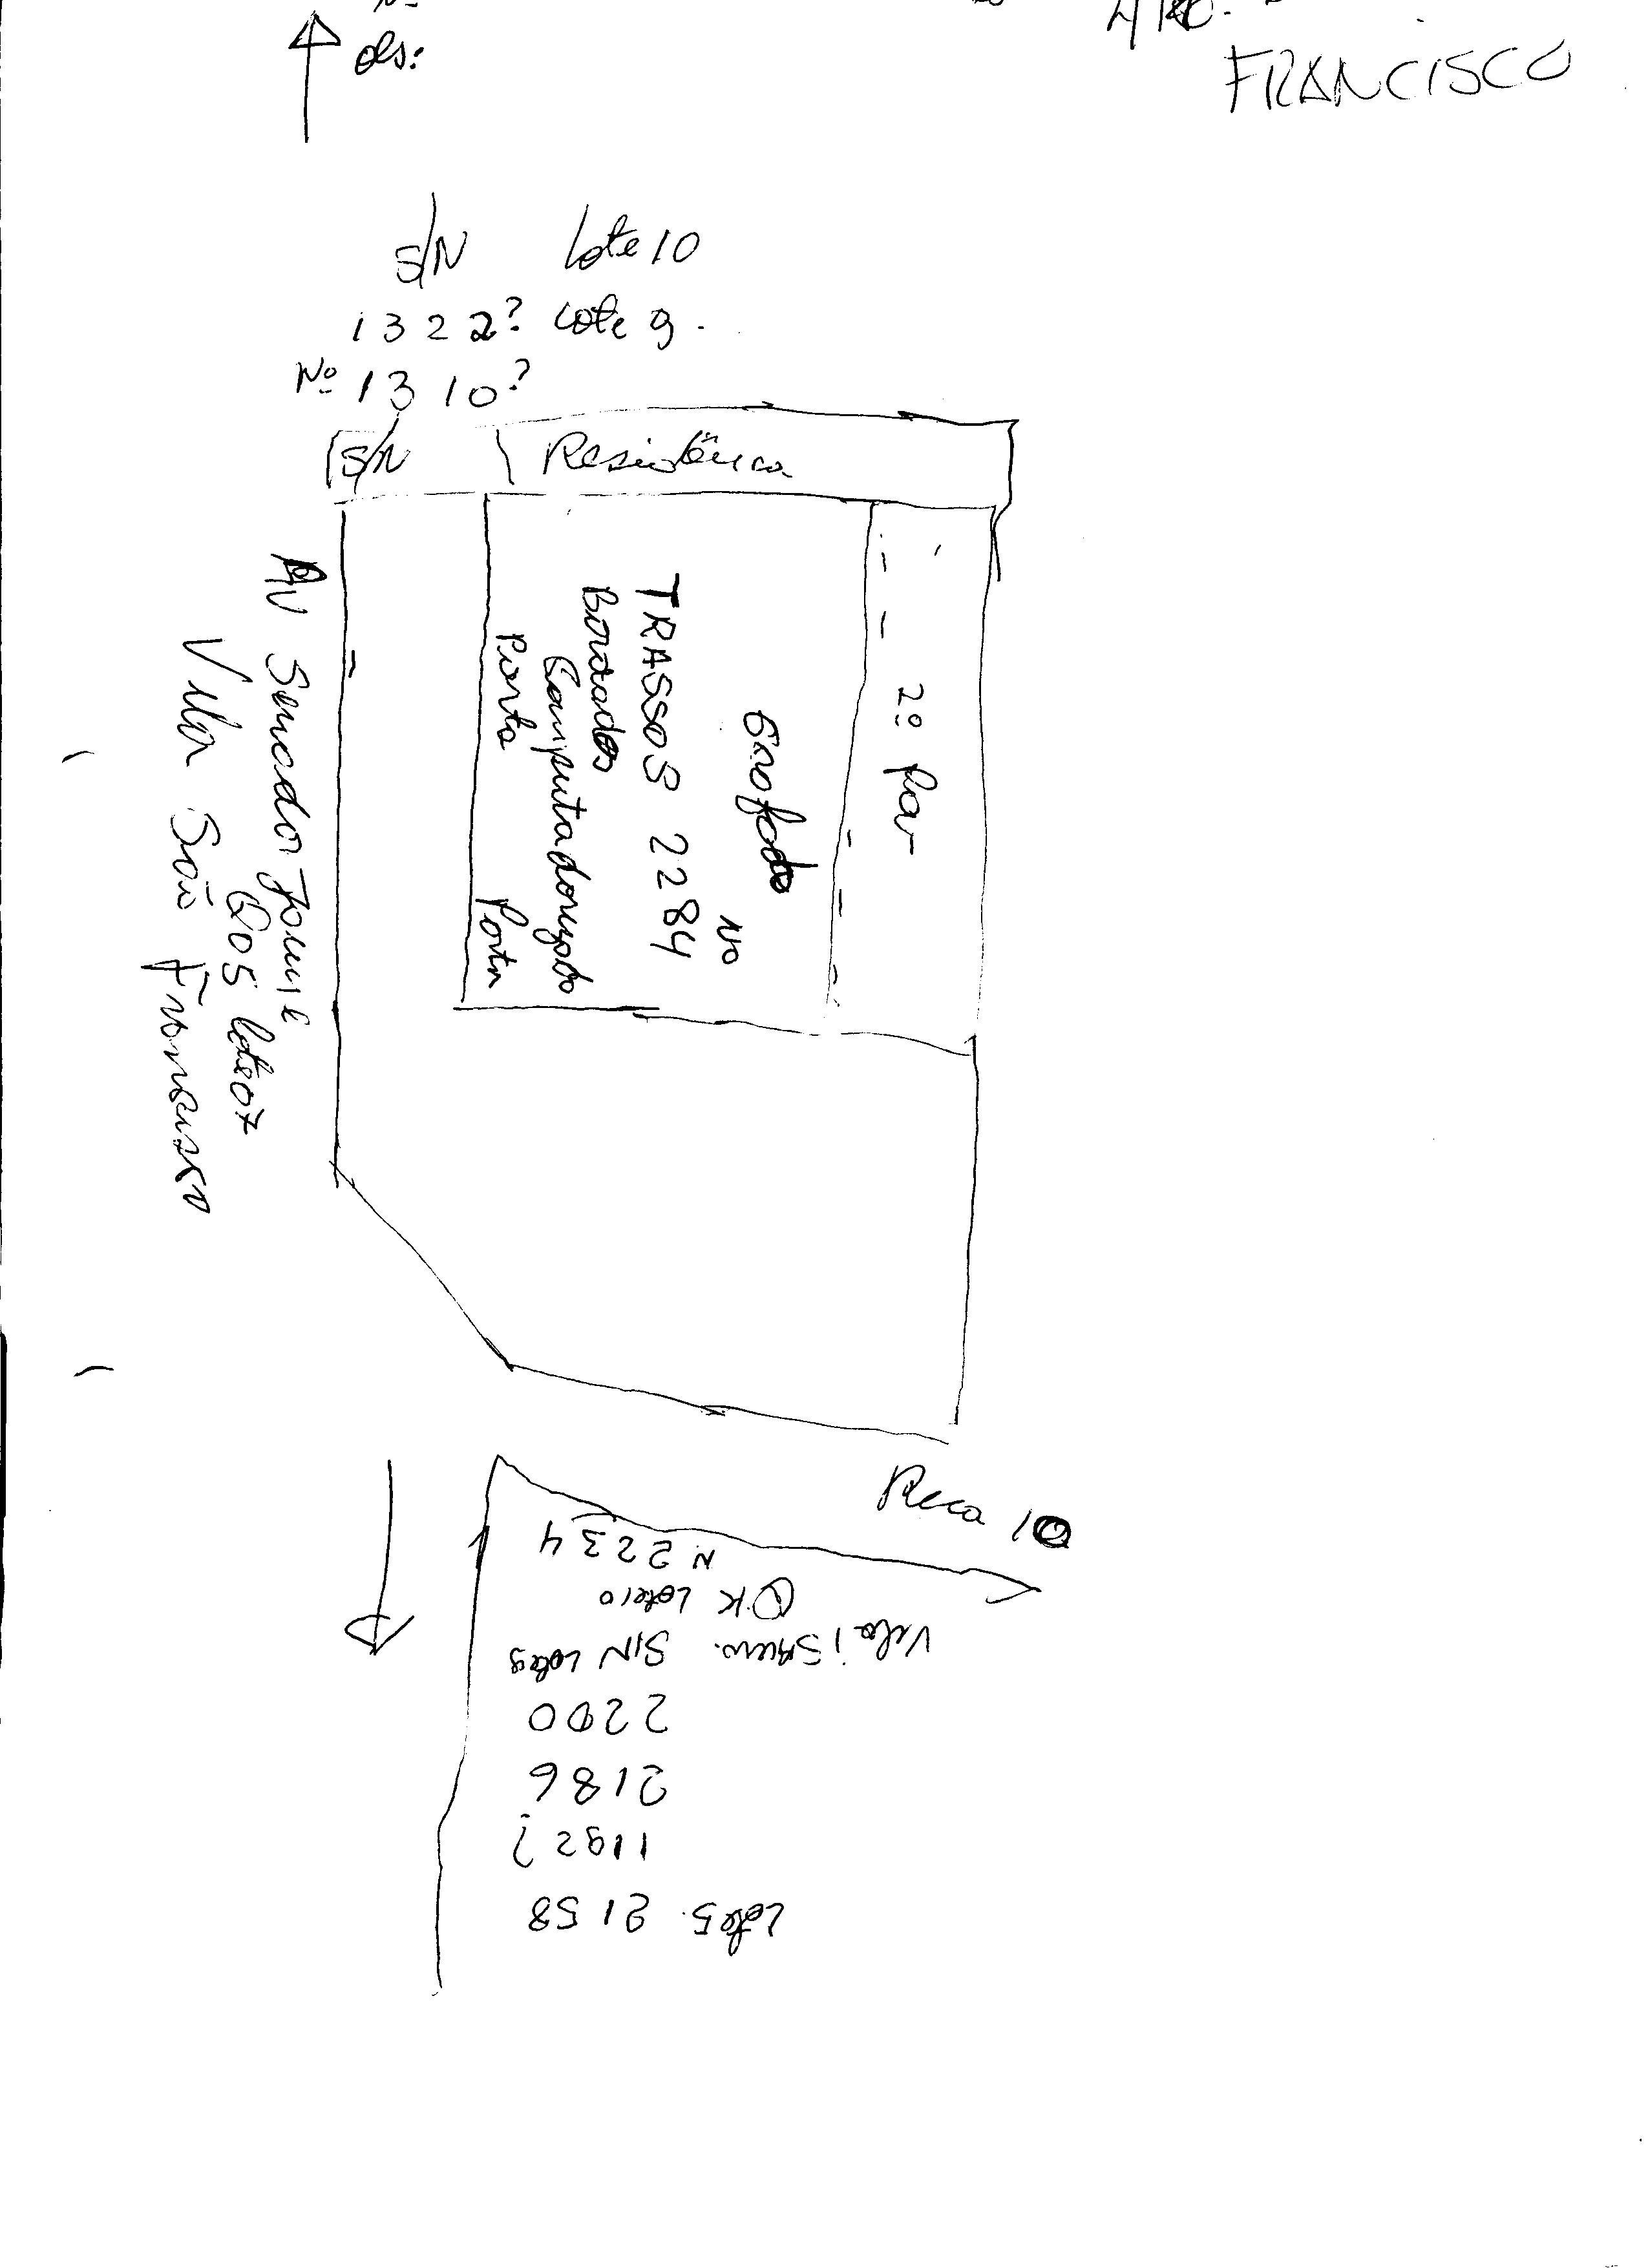 obs:
FRANCISCO
S/N Lote 10
1322? Lote 9.
Nº 1310?
S/N Residência
2º Pav
Grafado
Nº
TRASSOS 2284
Bordados
Computadorizado
Porta Porta
Av Senador Jaime
Q05 lote07
Vila São Francisco
Rua 10
N. 2234
OK Lote10
S/N Lote9
2200
2186
1192?
Lote5. 2158